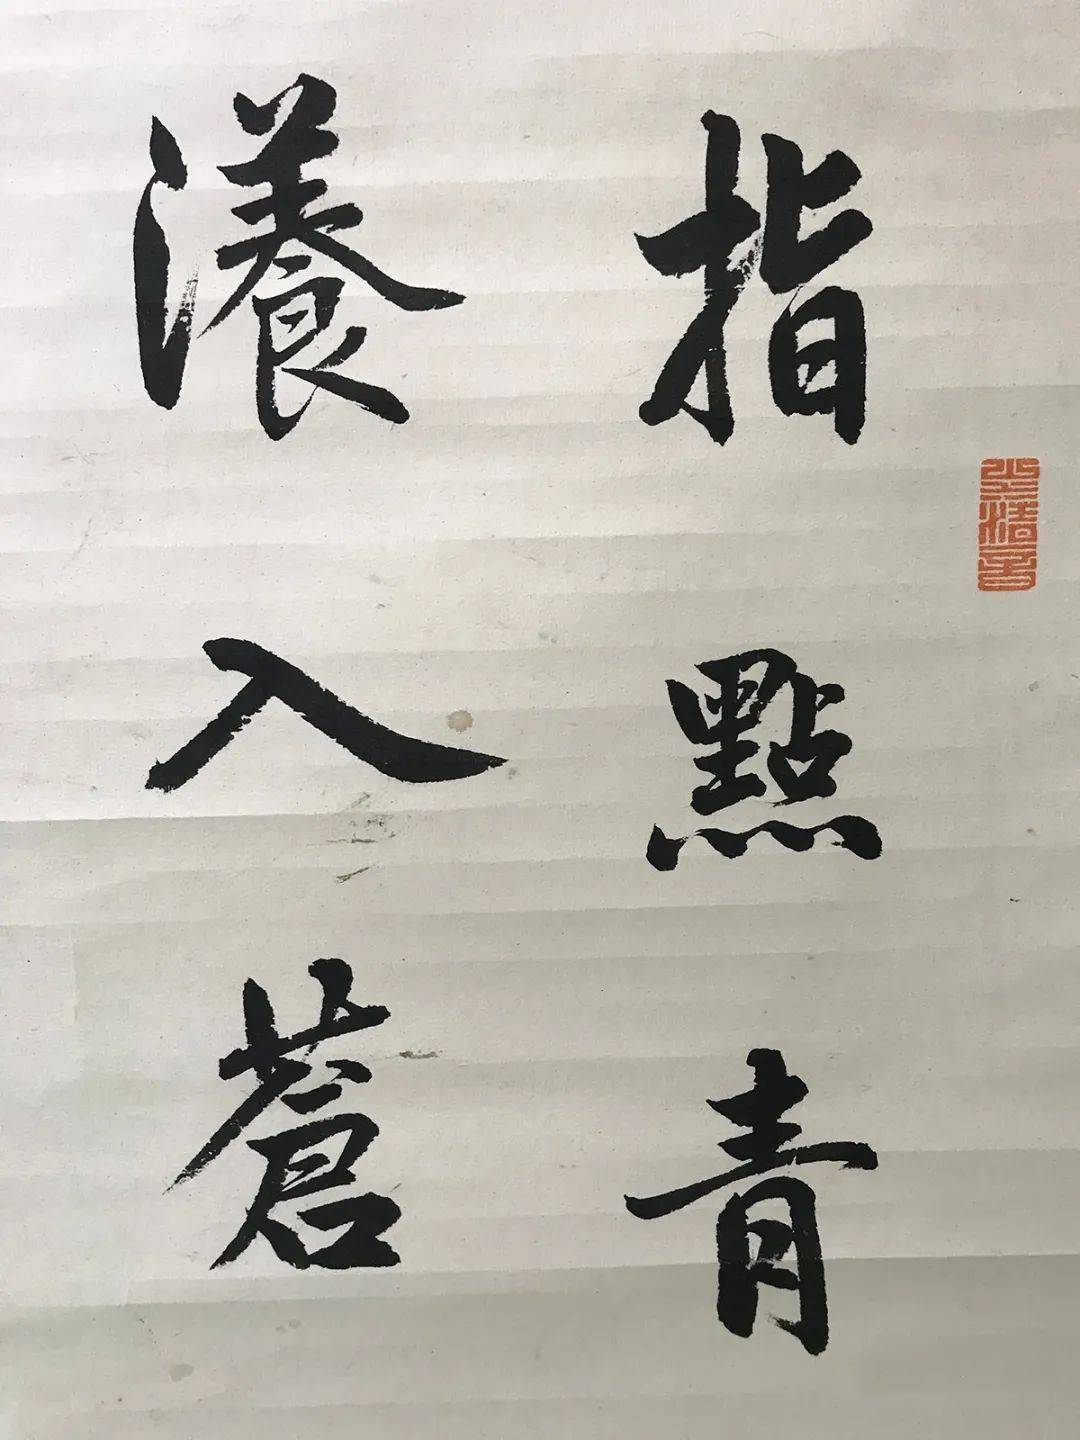 指點青
瀁入蒼